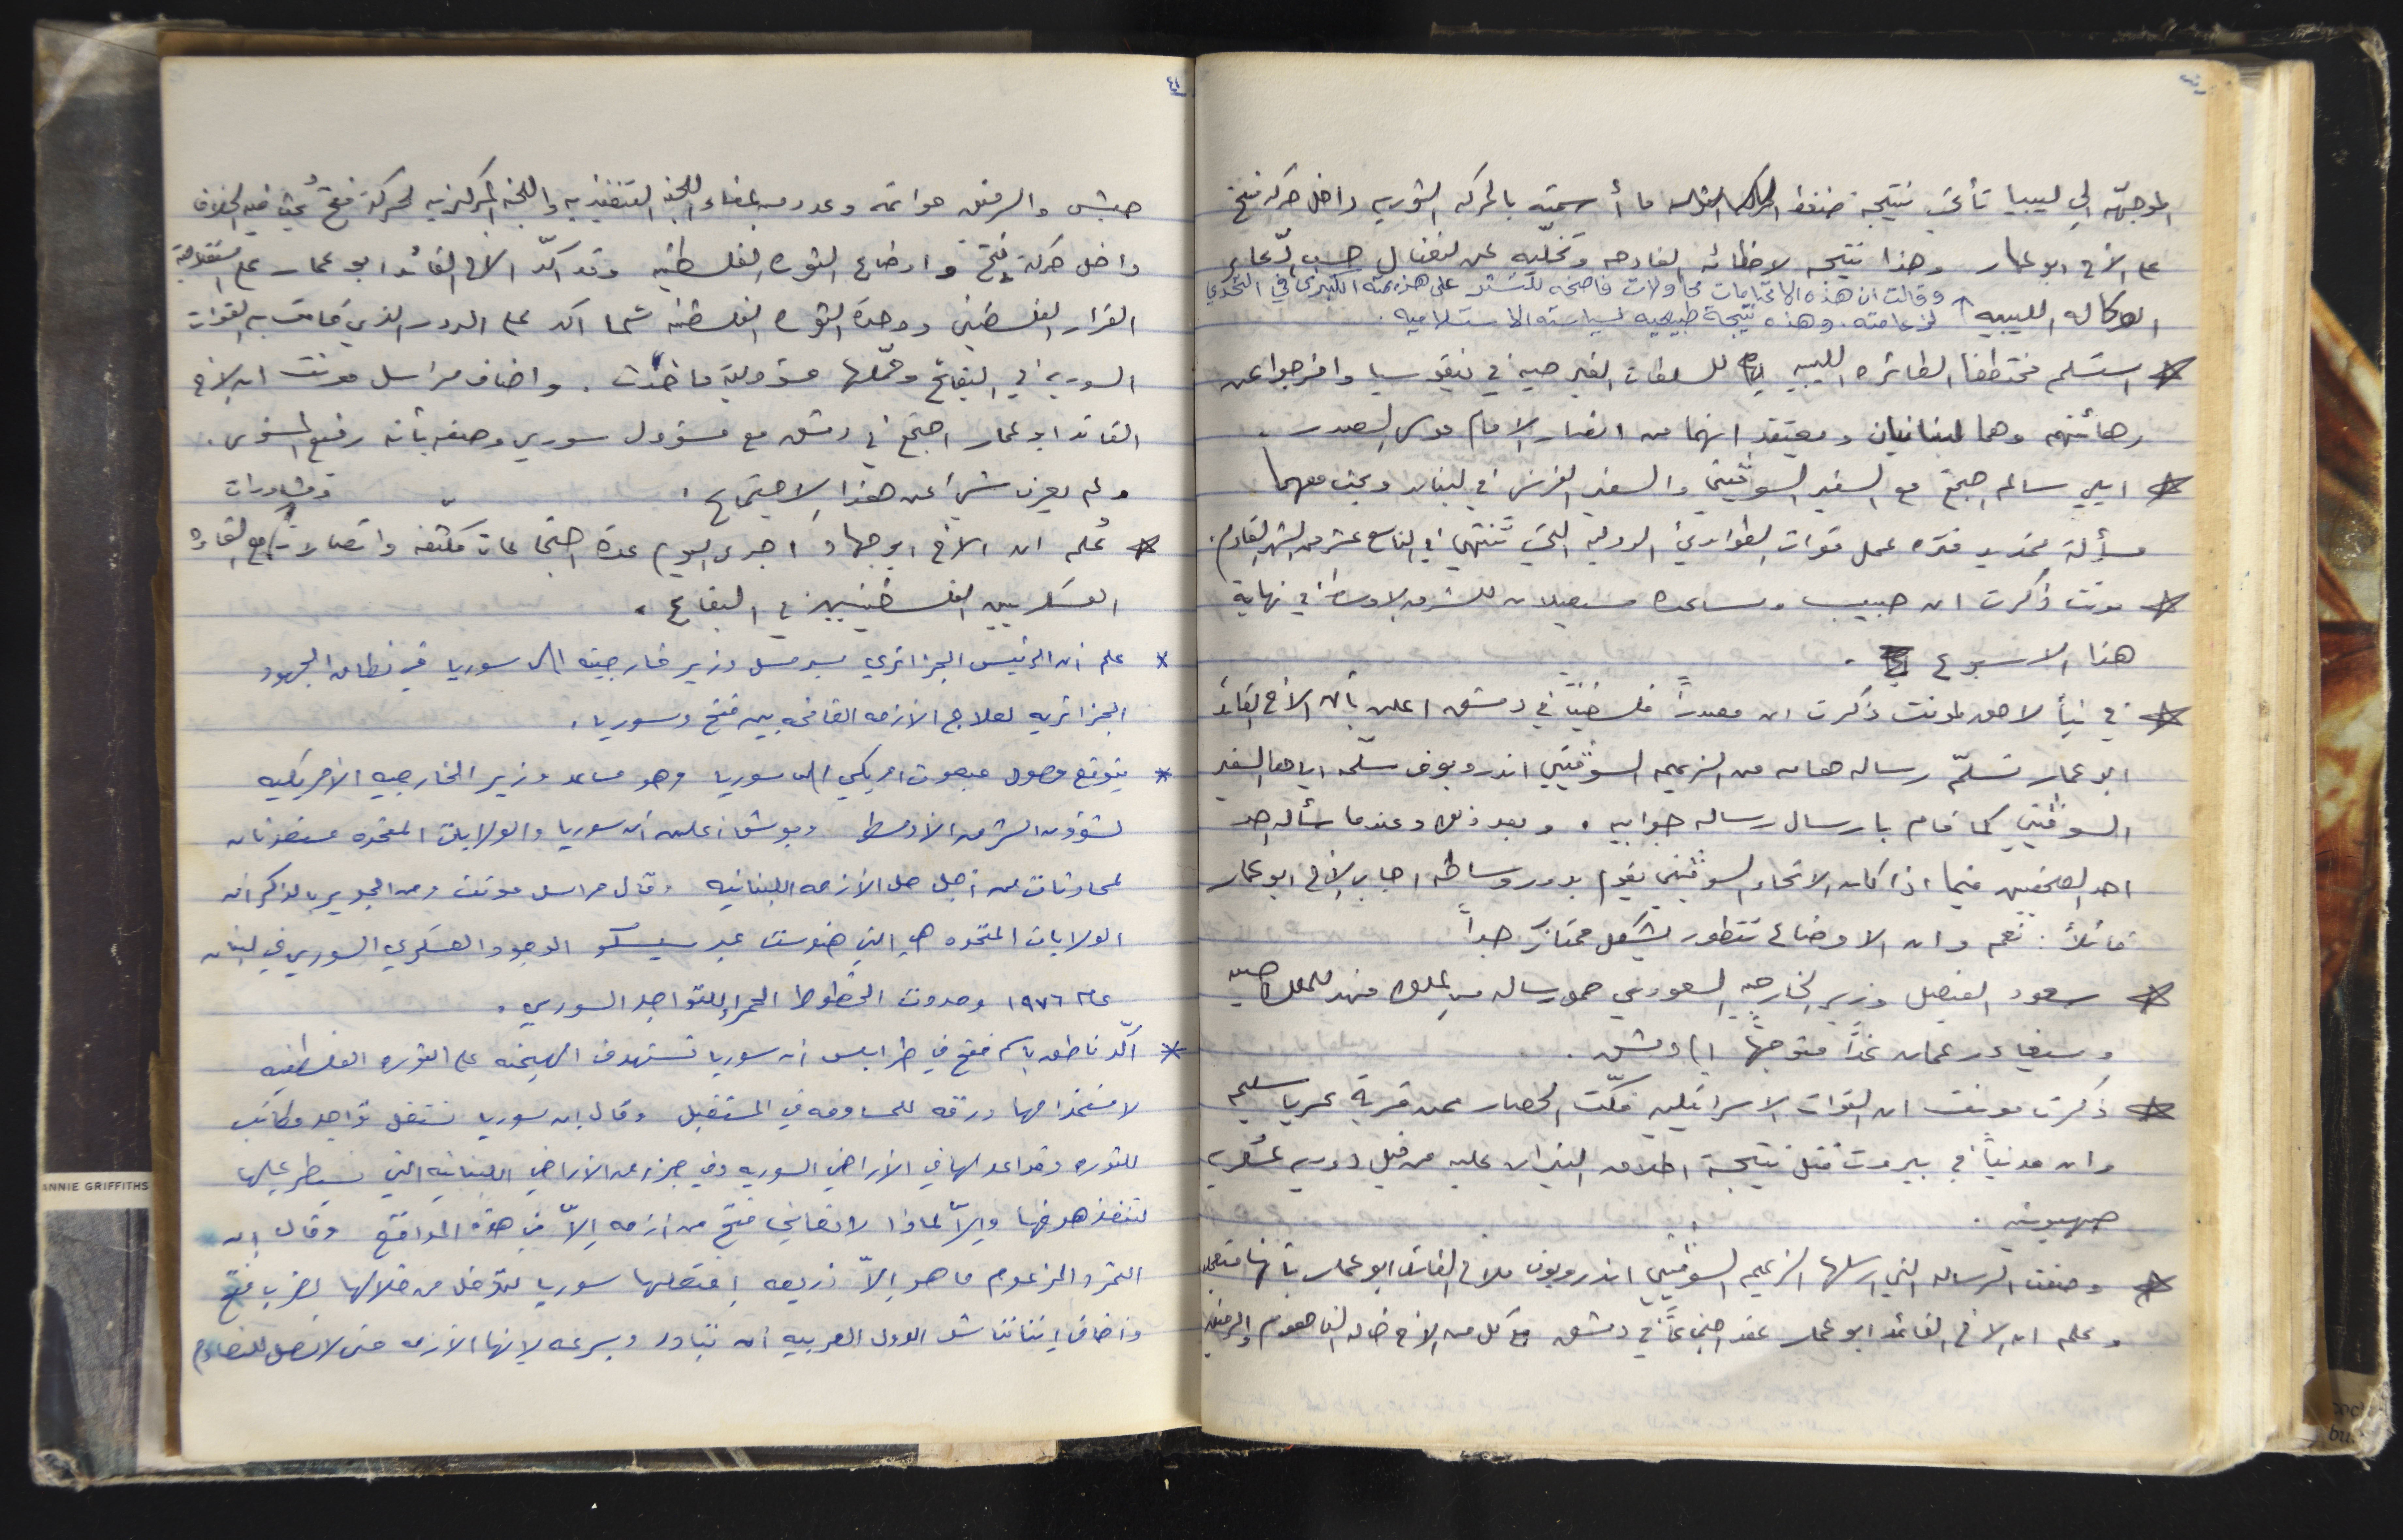 ٤٠
الموجهّه الى ليبيا تأتي نتيجة ضغط ما أسمته بالحركه الثوريه داخل حركة فتح
على الأخ ابو عمار وهذا نتيجه لاخطائه الفادحه وتخليّه عن النضال حسب ادّعاء
وقالت ان هذه الاتهامات محاولات فاضحه للتستر على هزيمته الكبرى في التحدي
الوكاله الليبيه لزعامته. وهذه نتيجة طبيعيه لسياسته الاستسلاميه.
* استسلم مختطفا الطائره الليبيه للسلطات القبرصيه في نيقوسيا وافرجوا عن
رهائنهم وهما لبنانيان ويعتقد انهما من انصار الامام موسى الصدر.
* ايلي سالم اجتمع مع السفير السوڤيتي والسفير الفرنسي في لبنان وبحث معهما
مسألة تمديد فتره عمل قوات الطوارئ الدوليه التي تنتهي في التاسع عشر من الشهر القادم.
* مونت ذكرت ان حبيب ومساعده سيصلان للشرق الاوسط في نهاية
هذا الاسبوع.
* في نبأ لاحق لمونت ذكرت ان مصدراً فلسطينياً في دمشق اعلن بأن الأخ القائد
ابو عمار تسلّم رساله هامه من الزعيم السوڤيتي اندروبوف سلّمه اياها السفير
السوڤيتي كما قام بارسال رساله جوابيه. وبعد ذلك وعندما سأله احد
احد الصحفيين فيما اذا كان الاتحاد السوڤيتي يقوم بدور وساطه اجاب الأخ ابو عمار
قائلاً: نعم وان الاوضاع تتطور بشكل ممتاز جداً
* سعود الفيصل وزير الخارجيه السعودي حمل رساله من الملك فهد للملك حسين
وسيغادر عمان غداً متوجهاً الى دمشق.
* ذكرت مونت ان القوات الاسرائيليه فكّت الحصار عن قرية عربصاليم
وان مدنياً في بيروت قتل نتيجة اطلاق النيران عليه من قبل دوريه عسكريه
صهيونيه.
* وصفت الرساله التي ارسلها الزعيم السوڤيتي اندروبوف للاخ القائد ابو عمار بأنها
وعلم ان الأخ القائد ابو عمار عقد اجتماعاً في دمشق مع كل من الأخ خالد الفاهوم والرفيق
٤١
حبش والرفيق حواتمه وعدد من اعضاء اللجنه التنفيذيه واللجنه المركزيه لحركة فتح بحث فيه الخلاف
داخل حركة فتح واوضاع الثوره الفلسطينيه وقد اكدّ الأخ القائد ابو عمار على استقلالية
القرار الفلسطيني ووحدة الثوره الفلسطينيه كما اكد على الدور الذي قامت به القوات
السوريه في البقاع وحمّلها مسؤولية ما حدث. واضاف مراسل مونت ان الأخ
القائد ابو عمار اجتمع في دمشق مع مسؤول سوري وصفه بأنه رفيع المستوى.
ولم يعرف شيئ عن هذا الاجتماع.
ومشاورات
* عُلم ان الأخ ابو جهاد أجرى اليوم عدة اجتماعات مكثفه واتصالات مع القاده
العسكريين الفلسطينيين في البقاع.
* علم ان الرئيس الجزائري سيرسل وزير خارجيته الى سوريا في نطاق الجهود
الجزائريه لعلاج الأزمه القائمه بين فتح وسوريا.
* يتوقع وصول مبعوث امريكي الى سوريا وهو مساعد وزير الخارجيه الأمريكيه
لشؤون الشرق الأوسط وبوش أعلن أن سوريا والولايات المتحده ستعقدان
محادثات من أجل حل الأزمه اللبنانيه وقال مراسل مونت ومن الجدير بالذكر ان
الولايات المتحده هي التي هندست عبر سيسكو الوجود العسكري السوري في لبنان
عام ١٩٧٦ وحددت الخطوط الحمراء للتواجد السوري.
* اكّد ناطق باسم فتح في طرابلس أن سوريا تستهدف الهيمنه على الثوره الفلسطينيه
لاستخدامها ورقه للمساومه في المستقبل وقال ان سوريا تستغل تواجد مكاتب
للثوره وقواعد لها في الأراضي السوريه وفي جزء من الأراضي اللبنانيه التي تسيطر عليها
لتنفذ هدفها وإلاّ لماذا لا تعاني فتح من ازمه إلاّ في هذه المواقع وقال ان
التمرد المزعوم ما هو إلاّ ذريعه افتعلتها سوريا للتدخل من خلالها لضرب فتح
وأضاف اننا نناشد الدول العربيه أن تبادر وبسرعه لإنهاء الأزمه حتى لا تصل للتصادم
ANNIE GRIFFITHS